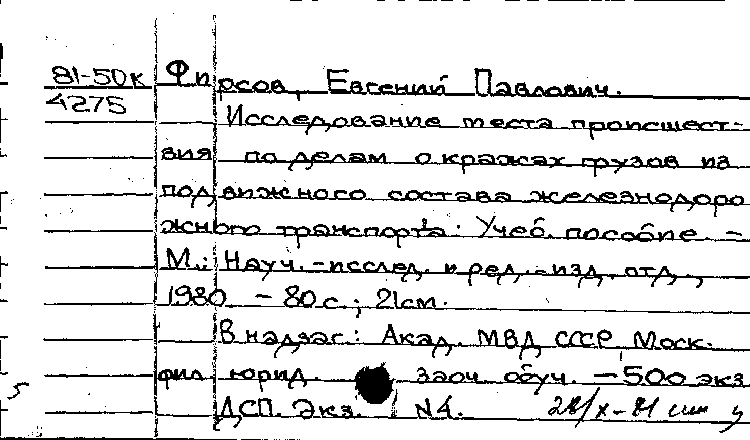 81-50к Фирсов, Евгений Павлович.
4275
Исследование места происшест-
вия по делам о кражах грузов из
подвижного состава железнодоро
жного транспорта: Учеб. пособие. -
М.: Науч.-исслед. и ред.-изд. отд.,
1980 - 80 с.; 21 см.
В надзаг.: Акад. МВД СССР, Моск.
фил. юрид. заоч. обуч. - 500 экз
ДСП. Экз. N4. 28/X-81
5